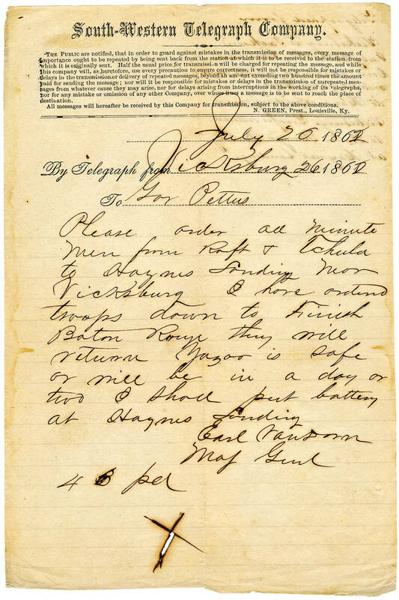 South-Western Telegraph Company.
THE PUBLIC are notified, that in order to guard against mistakes in the transmission of messages, every message of
importance ought to be repeated by being sent back from the station at which it is to be received to the station from
which it is originally sent. Half the usual price for transmission will be charged for repeating the message, and while
this company will, as heretofore, use every precaution to ensure correctness, it will not be responsible for mistakes or
delays in the transmission or delivery of repeated messages, beyond an amount exceeding two hundred times the amount
paid for sending the message; nor will it be responsible for mistakes or delays in the transmission of unrepeated mes-
sages from whatever cause they may arise, nor for delays arising from interruptions in the working of its telegraphs,
nor for any mistake or omission of any other Company, over whose lines a message is to be sent to reach the place of
destination.
All messages will hereafter be received by this Company for transmission, subject to the above conditions.
N. GREEN, Prest., Louisville, Ky.
July 26 1862
By Telegraph from Vicksburg 26 1862
To Gov Pettus
Please order all minute
men from Raft & Tchula
to Haynes Landing near
Vicksburg I have ordered
troops down to finish
Baton Rouge they will
return Yazoo is safe
or will be in a day or
two I shall put battery
at Haynes Landing
Earl Van Dorn
Maj Genl
pd